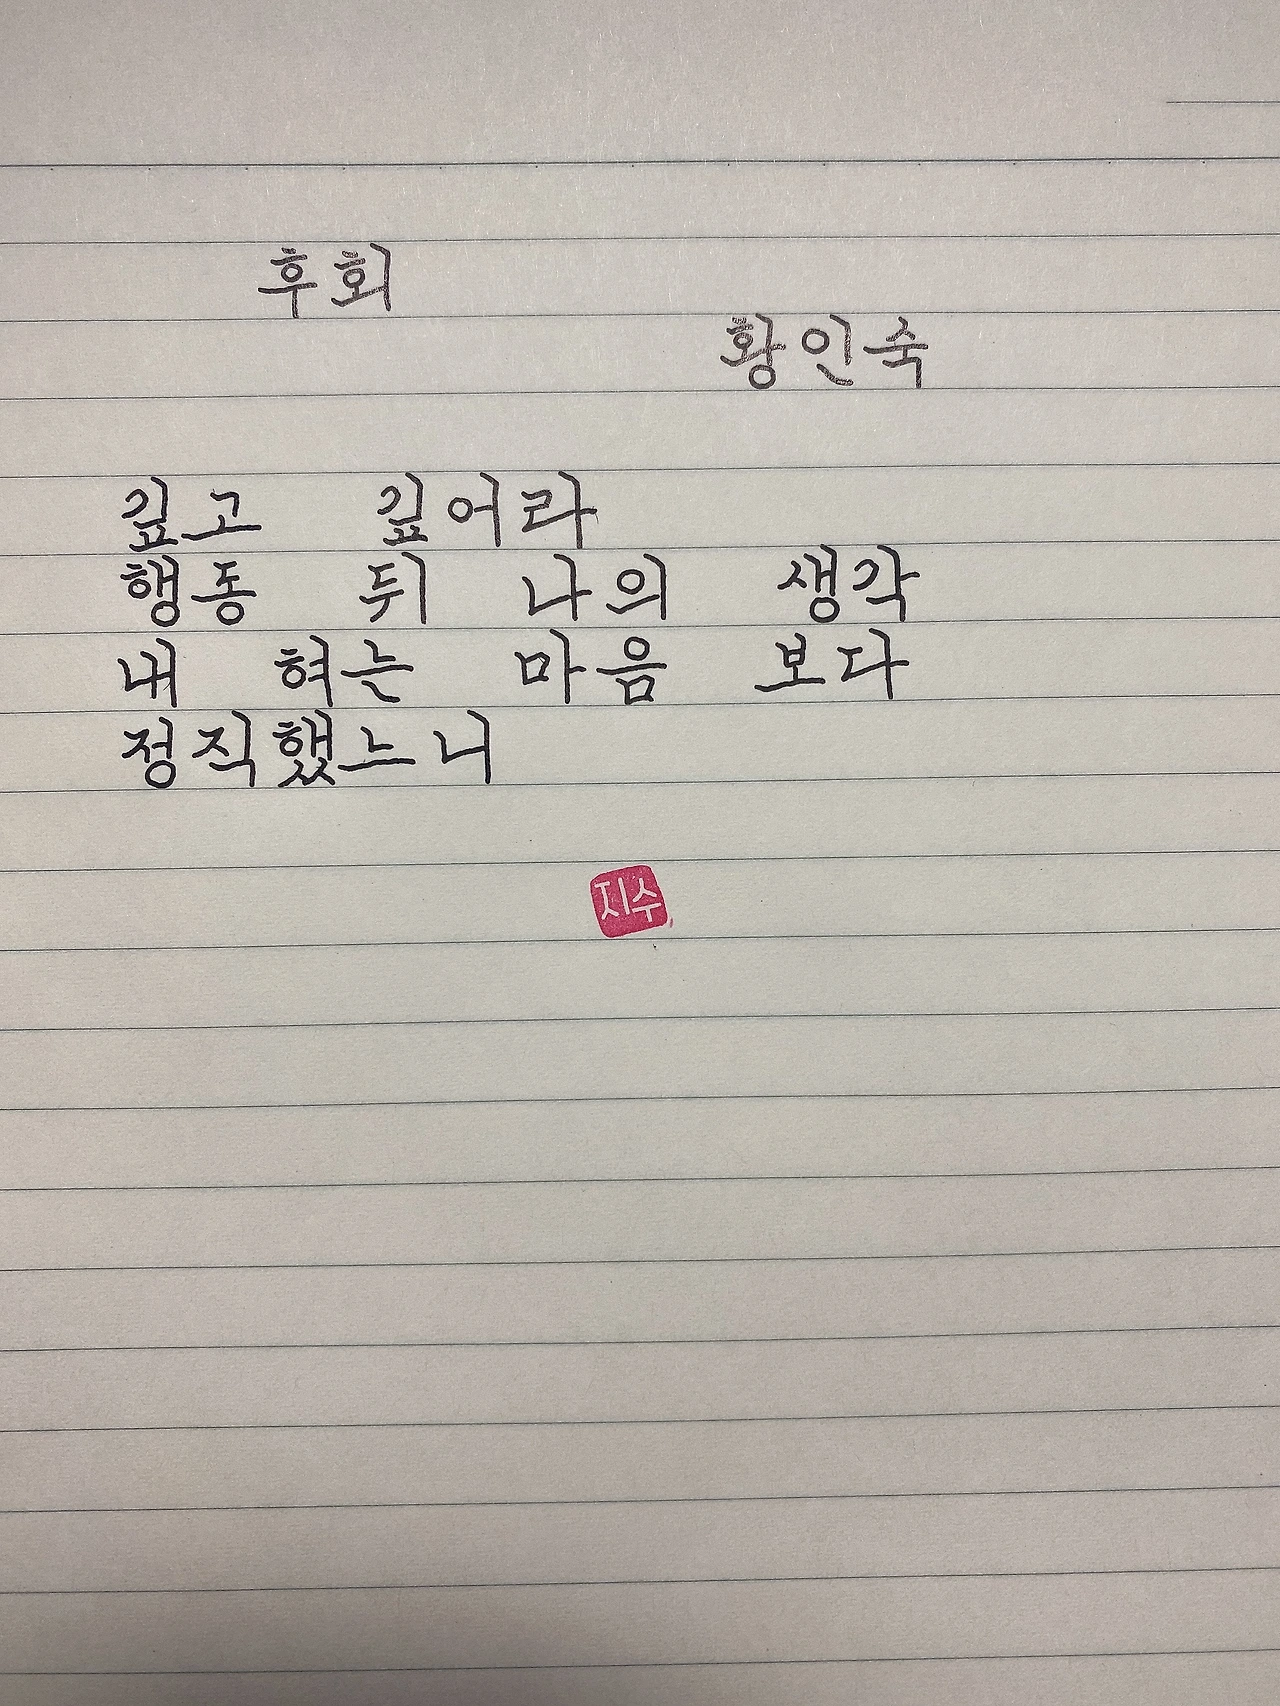 후회
황인숙
깊고 깊어라
행동 뒤 나의 생각
내 혀는 마음 보다
정직했느니
지수